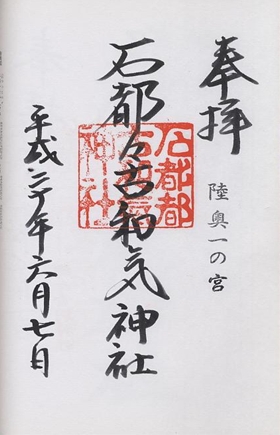 奉拝
陸奥一の宮
石都々古和気神社
石都都
古和氣
神社
平成二十年六月七日